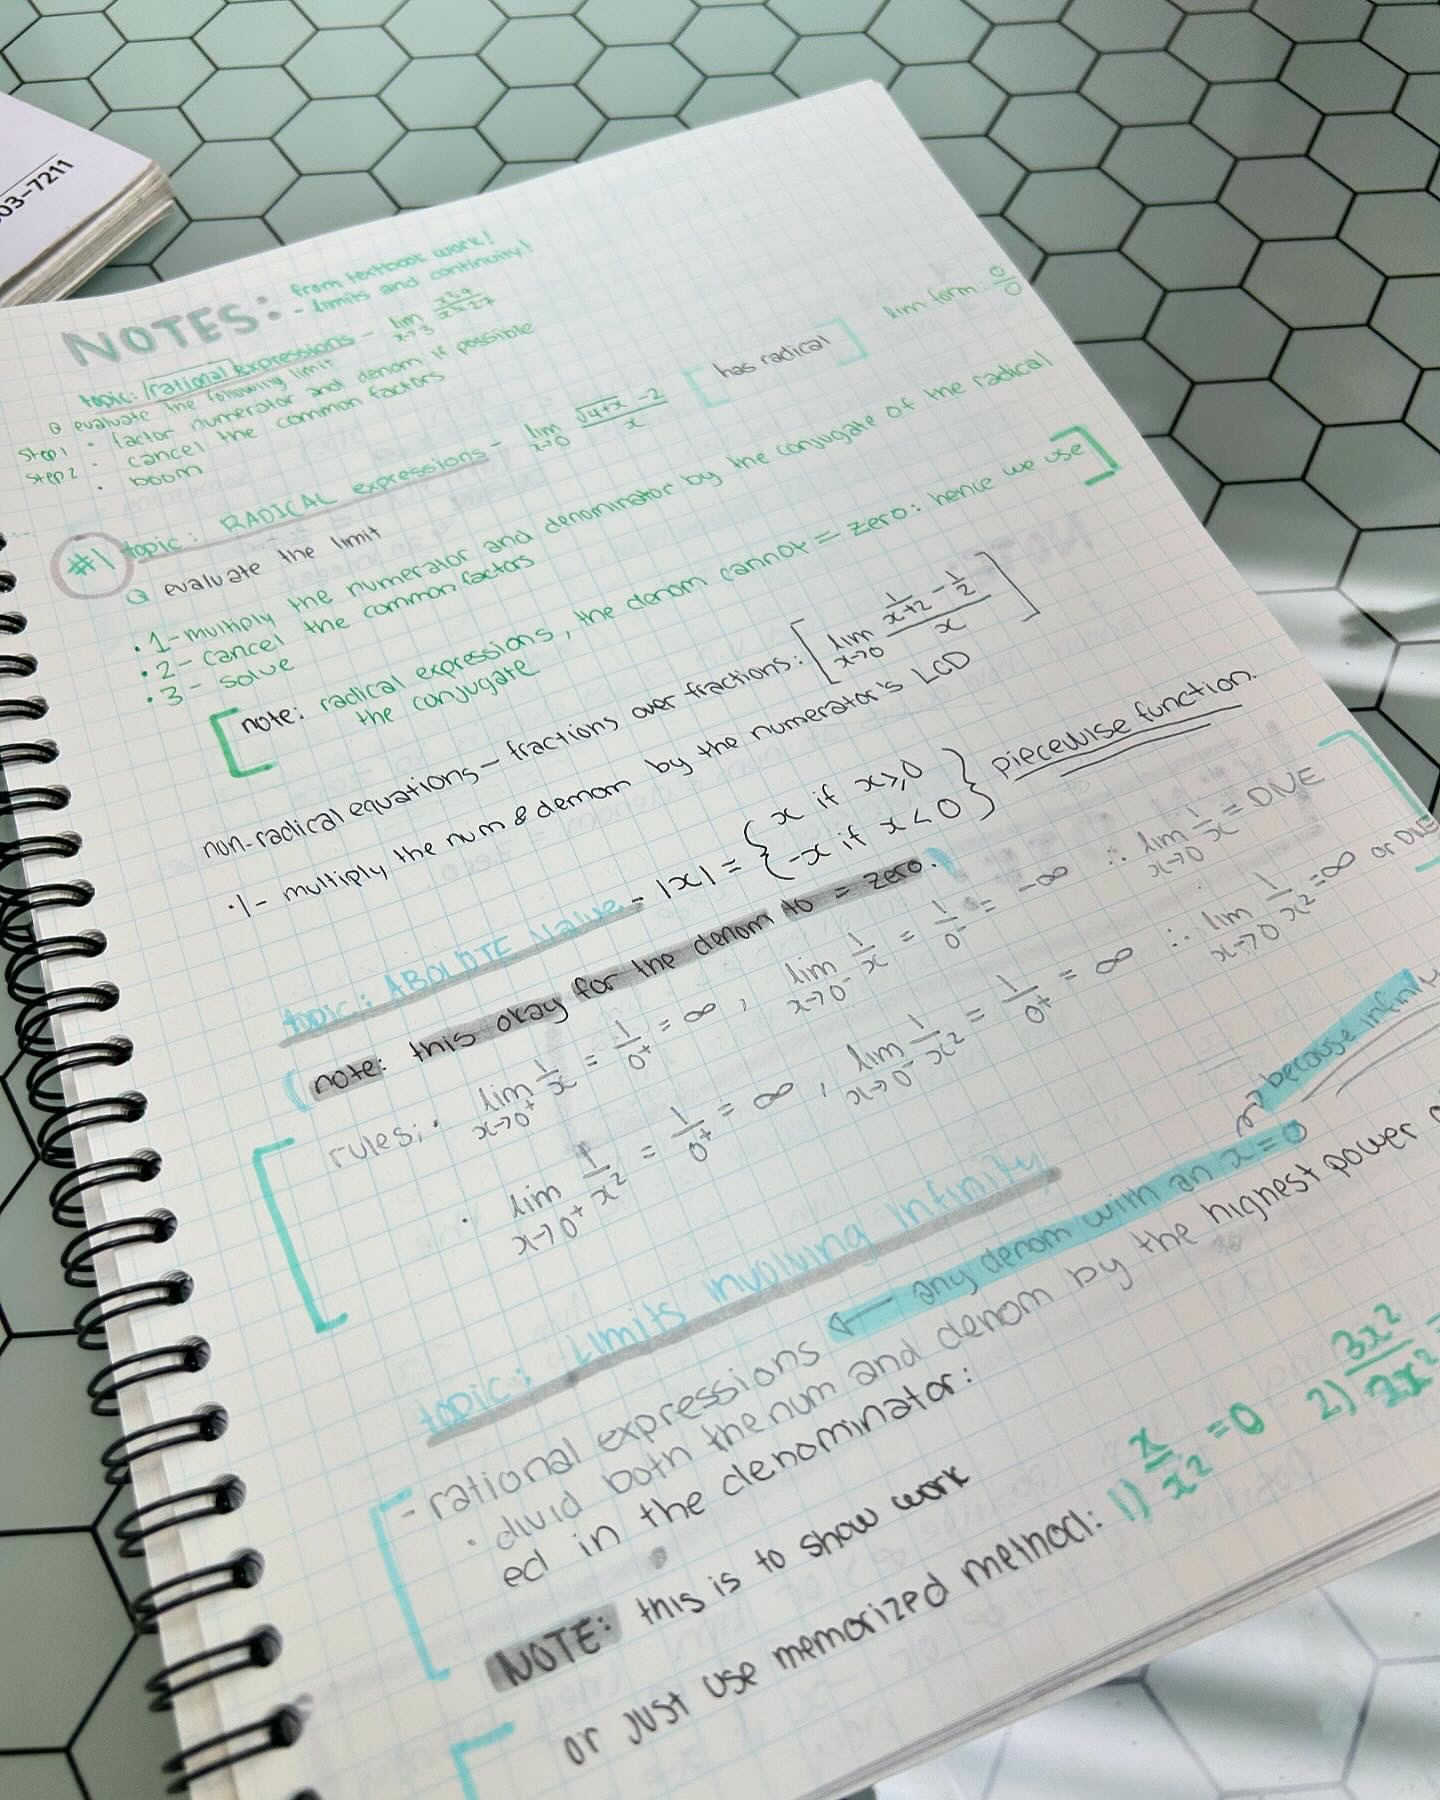 03-7211
NOTES: from textbook work!
- limits and continuity!
topic: rational expressions - lim x→3
Q evaluate the following limit
step 1 • factor numerator and denom if possible
step 2 • cancel the common factors
• boom
#1 topic: RADICAL expressions - lim x→0 √4+x - 2 / x [has radical] lim form: 0/0
Q evaluate the limit
• 1 - multiply the numerator and denominator by the conjugate of the radical
• 2 - cancel the common factors
• 3 - solve
[note: radical expressions, the denom cannot = zero: hence we use]
the conjugate
non-radical equations - fractions over fractions: [lim x→0 1/x+2 - 1/2 / x]
• 1 - multiply the num & denom by the numerator's LCD
topic: ABOLUTE Value - |x| = { x if x ≥ 0
-x if x < 0 } piecewise function.
(note: this okay for the denom to = zero.)
rules: • lim x→0⁺ 1/x = 1/0⁺ = ∞ , lim x→0⁻ 1/x = 1/0⁻ = -∞ ∴ lim x→0 1/x = DNE
• lim x→0⁺ 1/x² = 1/0⁺ = ∞ , lim x→0⁻ 1/x² = 1/0⁺ = ∞ ∴ lim x→0 1/x² = ∞ or DNE
topic: Limits involving Infinity
- rational expressions ← any denom with an x = 0 → because infinity
• divid both the num and denom by the highest power
ed in the denominator:
NOTE: this is to show work
or just use memorized method: 1) x/x² = 0 2) 3x²/2x² =